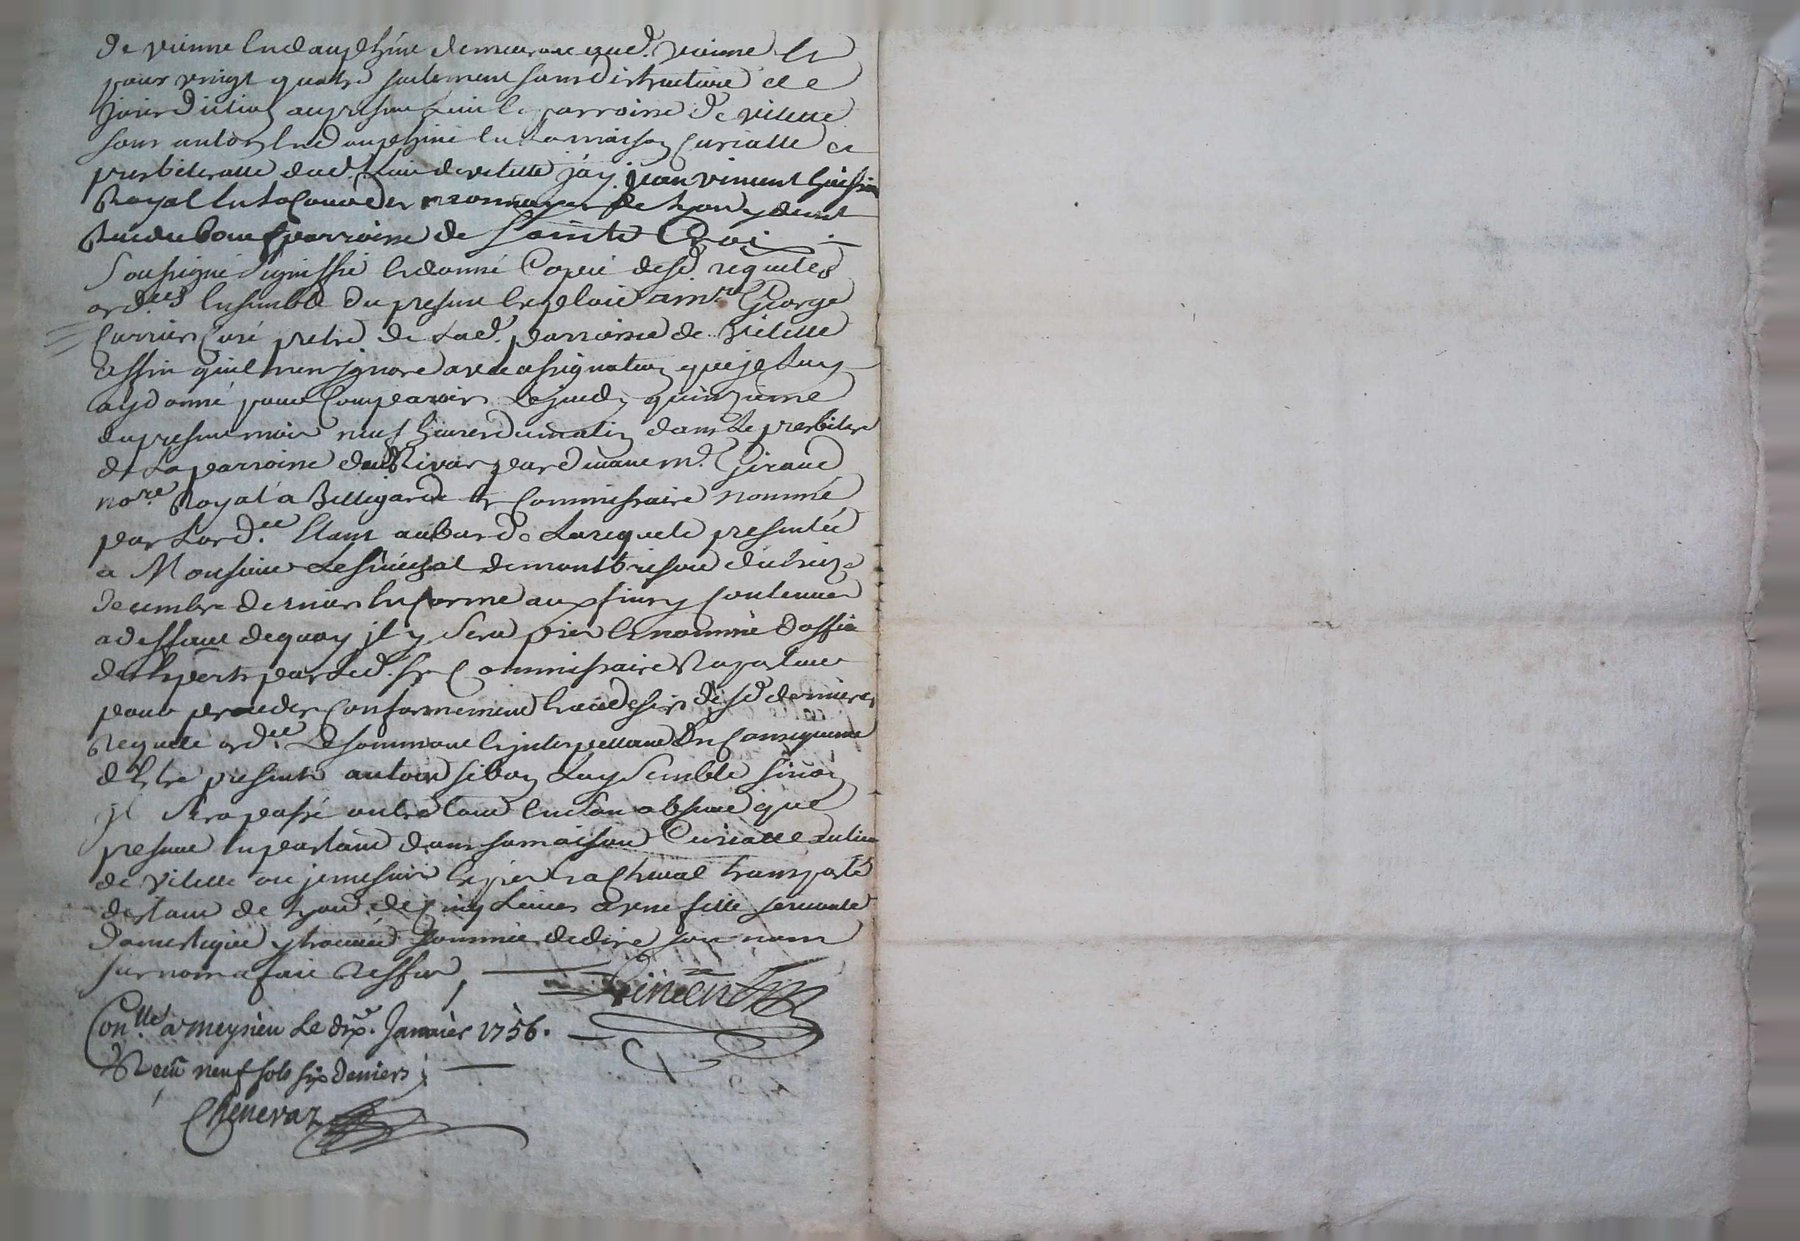 de vienne en dauphiné demeurant aud. vienne et
pour vingt quatre heures seulement sans distraction de
jurisdiction au presant lieu et parroisse de vilette
sous anton en dauphiné en la maison curialle et
presbiteralle dud. lieu de vilette j'ay jean vincent huissier
Royal en la cour des monnoyes de Lyon y demt
Rue du boeuf parroisse de Sainte Croix
Soussigné signiffié et donné Copie desd. requetes
ordces ensemble du presant exploit a mre George
Curé pretre de lad. parroisse de vilette
affin qu'il n'en jgnore avec assignation que je luy
ay donné pour Comparoir le jeudy quinzieme
du present mois neuf heures du matin dans le presbitere
de la parroisse de Rivas pardevant me. Giraud
nore Royal a Bellegarde et Commissaire nommé
par l'ordce. etant au bas de la requete presentée
a Monsieur le senechal de montbrison du
decembre dernier en forme aux fins y contenues
a deffaut de quoy jl y sera pris et nommé d'office
des experts par led. sr Commissaire
pour proceder conformement au desir desd. dernieres
Requete ordce. Le sommant et interpellant En Consequence
d'Etre present autout si bon luy semble sinon
jl sera passé outre tant en son absence que
presence en parlant dans sa maison Curialle au lieu
de vilette ou je me suis expres a cheval transporté
distant de Lyon de cinq lieues a une fille servante
domestique y trouvée sommée de dire son nom
surnom a fait Reffus,
Vincent
Conlle a meysieu Le dix. Janvier 1756.
Recu neuf sols six deniers
Chenevaz